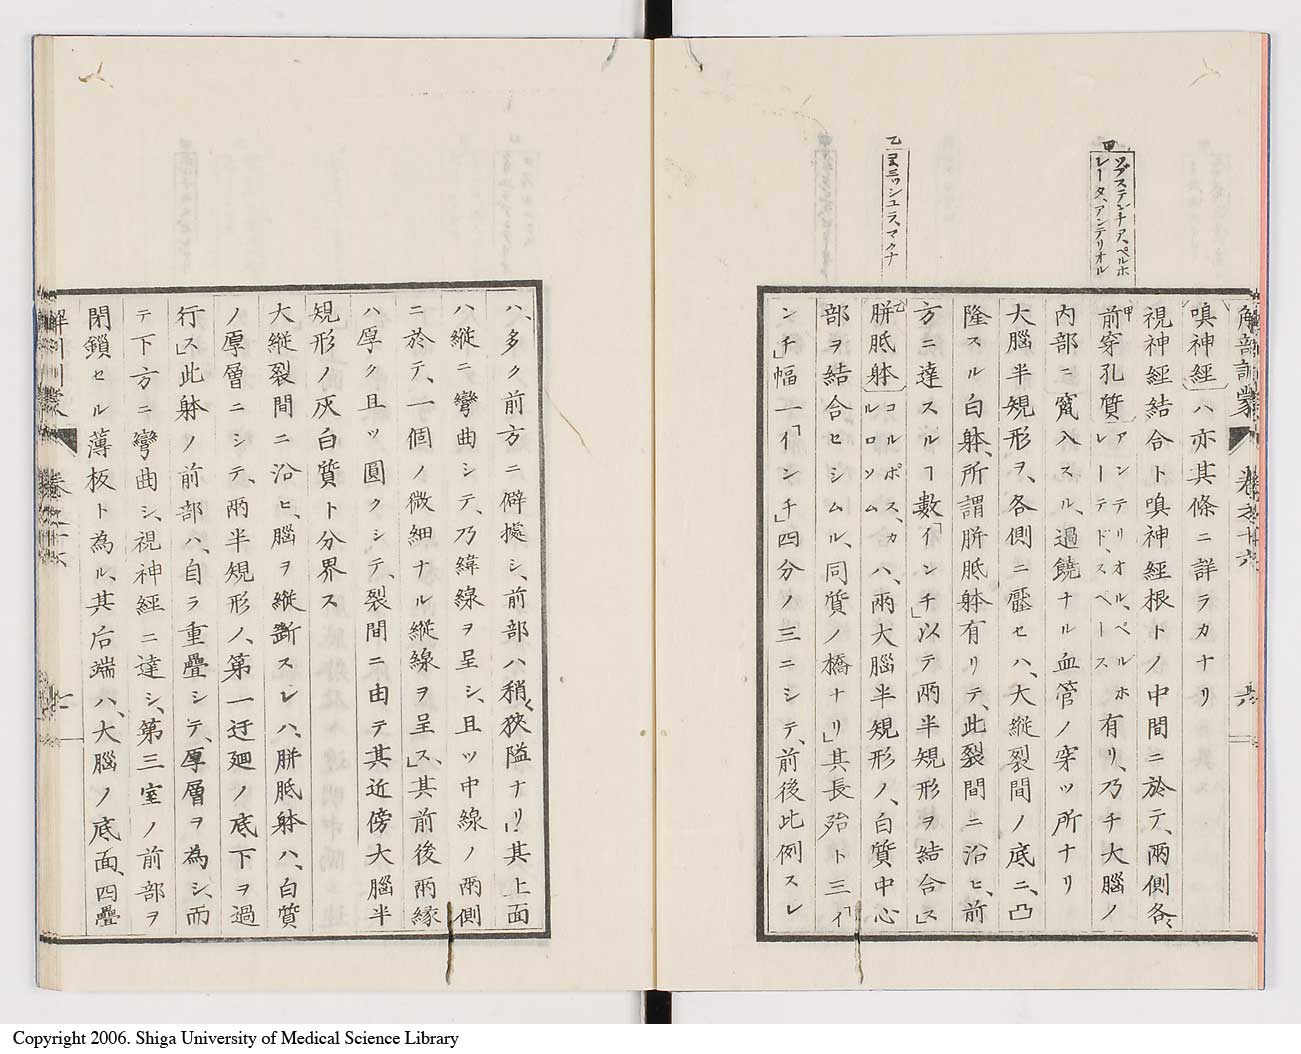 甲
ソブステンチア、ペルホ
レータ、アンテリオル
乙
コミッシュラ、マクナ
解剖訓蒙 卷之十六 六
嗅神經ハ亦其條ニ詳ラカナリ
視神經結合ト嗅神經根トノ中間ニ於テ、兩側各、
甲前穿孔質アンテリオル、ペルホレーテド、スペース有リ、乃チ大腦ノ
内部ニ竄入スル、過饒ナル血管ノ穿ツ所ナリ
大腦半規形ヲ、各側ニ壓セハ、大縱裂間ノ底ニ、凸
隆スル白躰、所謂胼胝躰有リテ、此裂間ニ沿ヒ、前
方ニ達スルヿ數「インチ」以テ兩半規形ヲ結合ス」
乙胼胝躰コルポス、カルロツムハ、兩大腦半規形ノ、白質中心
部ヲ結合セシムル、同質ノ橋ナリ」其長殆ト三「イ
ンチ」幅一「インチ」四分ノ三ニシテ、前後此例スレ
ハ、多ク前方ニ僻據シ、前部ハ稍〻狹隘ナリ」其上面
ハ縱ニ彎曲シテ、乃緯線ヲ呈シ、且ツ中線ノ兩側
ニ於テ、一個ノ微細ナル縱線ヲ呈ス」其前後兩緣
ハ厚ク且ツ圓クシテ、裂間ニ由テ其近傍大腦半
規形ノ灰白質ト分界ス
大縱裂間ニ沿ヒ、腦ヲ縱斷スレハ、胼胝躰ハ、白質
ノ厚層ニシテ、兩半規形ノ、第一迂廻ノ底下ヲ過
行ス」此躰ノ前部ハ、自ラ重疊シテ、厚層ヲ為シ、而
テ下方ニ彎曲シ、視神經ニ達シ、第三室ノ前部ヲ
閉鎖セル薄板ト為ル、其后端ハ、大腦ノ底面、四疊
Copyright 2006. Shiga University of Medical Science Library